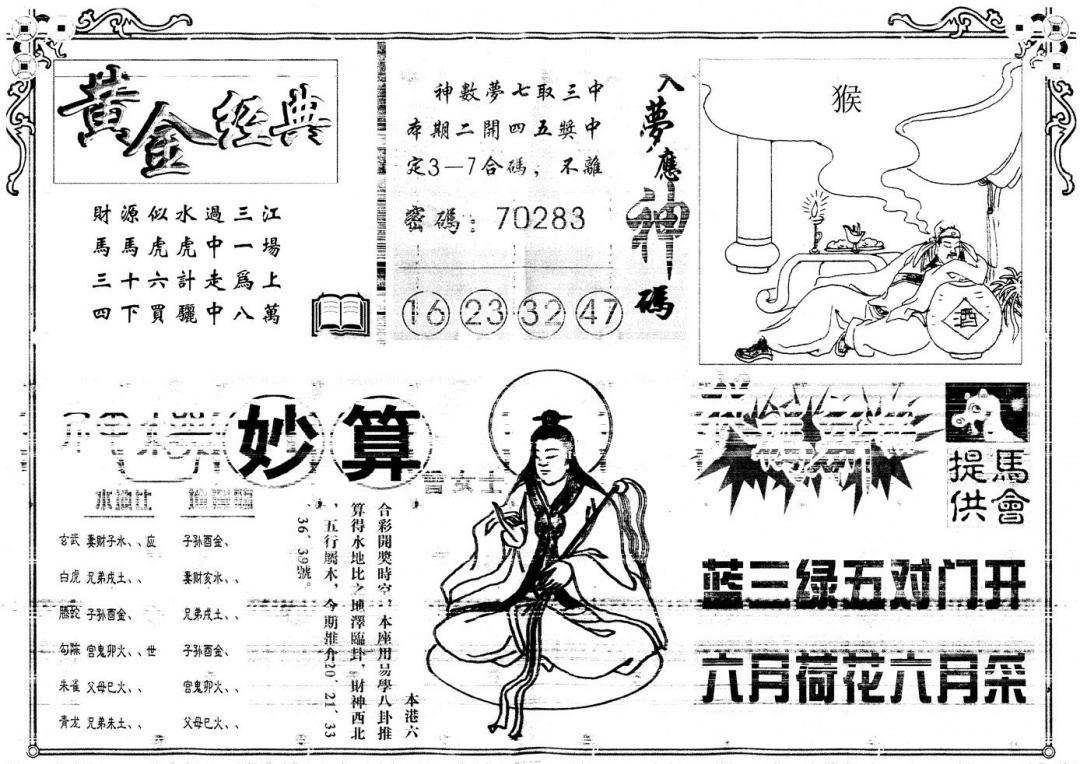 黃金經典
財源似水過三江
馬馬虎虎中一場
三十六計走爲上
四下買驪中八萬
神數夢七取三中
本期二開四五獎中
定3—7合碼，不離
密碼：70283
16 23 32 47
入夢應神碼
猴
酒
妙算
曾女士
水地比
玄武 妻财子水、、应 子孙酉金、
白虎 兄弟戌土、、 妻财亥水、、
腾蛇 子孙酉金、 兄弟戌土、、
勾陈 官鬼卯火、、世 子孙酉金、
朱雀 父母巳火、、 官鬼卯火、、
青龙 兄弟未土、、 父母巳火、
本港六
合彩開獎時空，本座用易學八卦推
算得水地比之地澤臨卦，財神西北
，五行屬木，今期推介20、21、33
、36、39號。
馬會
提供
蓝三绿五对门开
六月荷花六月采